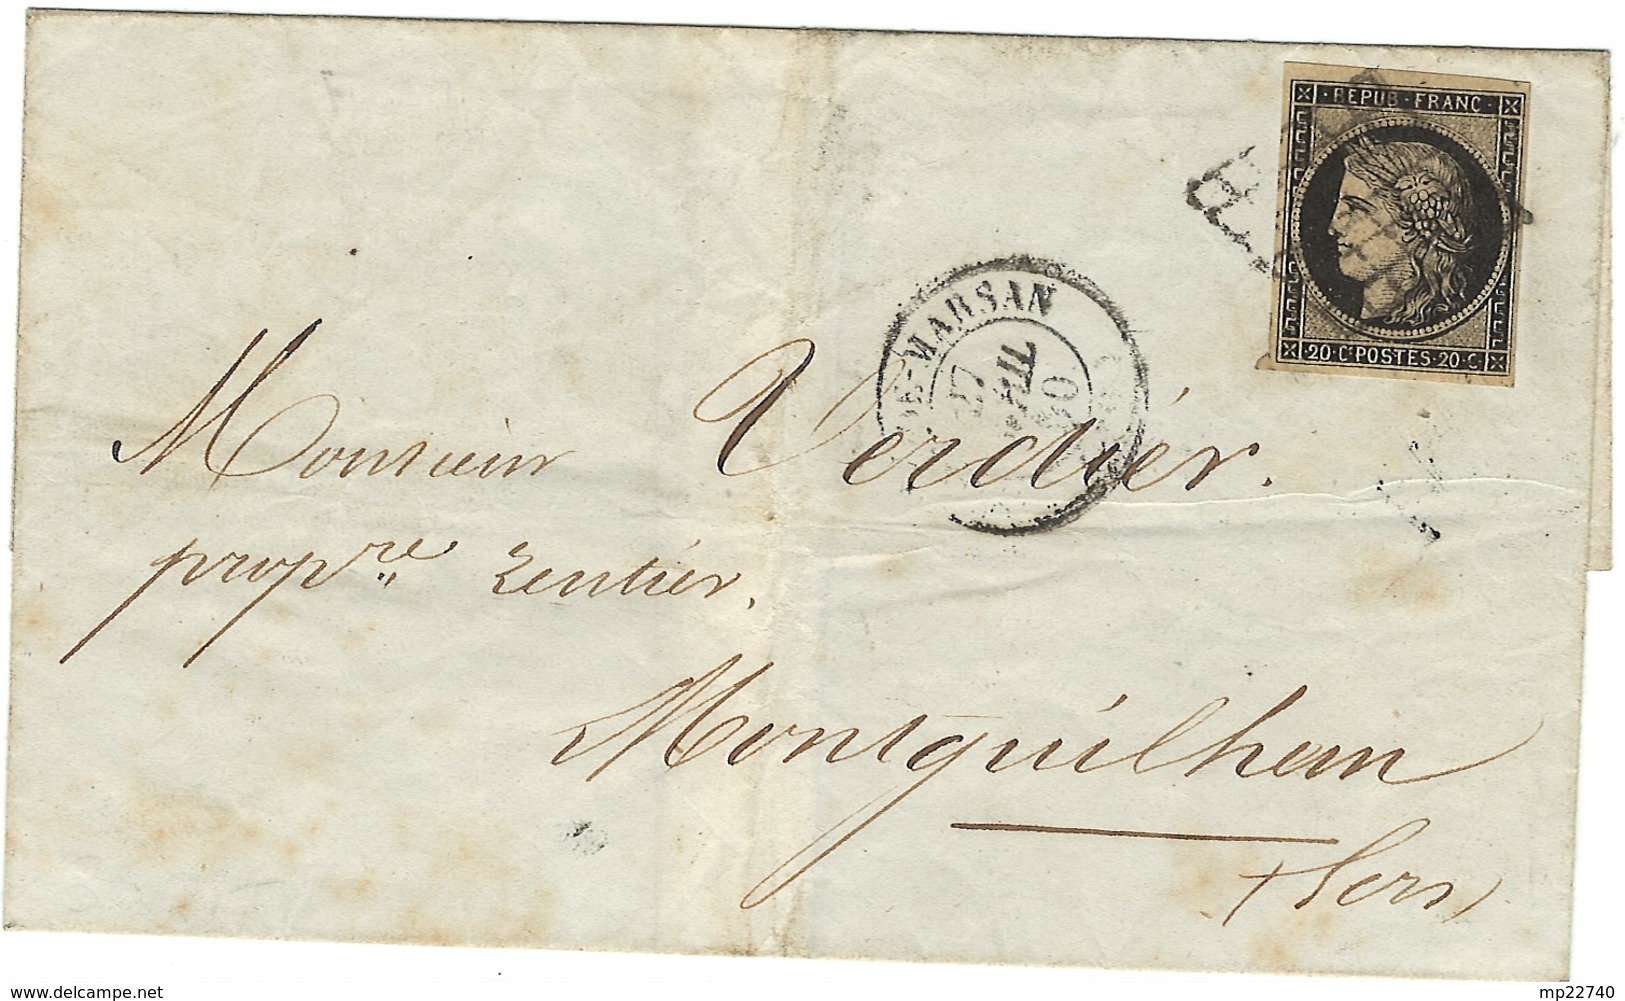 · REPUB · FRANC ·
20 · Cᵉ POSTES · 20 · C
MARSAN
Monsieur Verdier.
propʳᵉ rentier.
Montguilhem
Gers
www.delcampe.net
mp22740